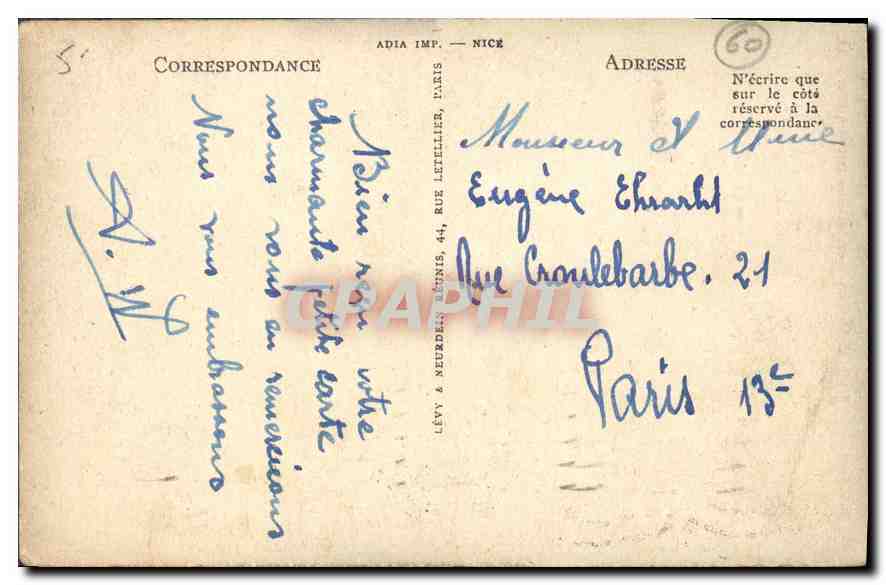 5'
60
ADIA IMP. — NICE
CORRESPONDANCE
ADRESSE
N'écrire que
sur le côté
réservé à la
correspondance
LÉVY & NEURDEIN RÉUNIS, 44, RUE LETELLIER, PARIS
Bien reçu votre
charmante petite carte
nous vous en remercions
Nous vous embrassons
A. W
Monsieur et Mme
Eugène Ehrarht
Rue Croulebarbe. 21
Paris 13e
CPAPHIL